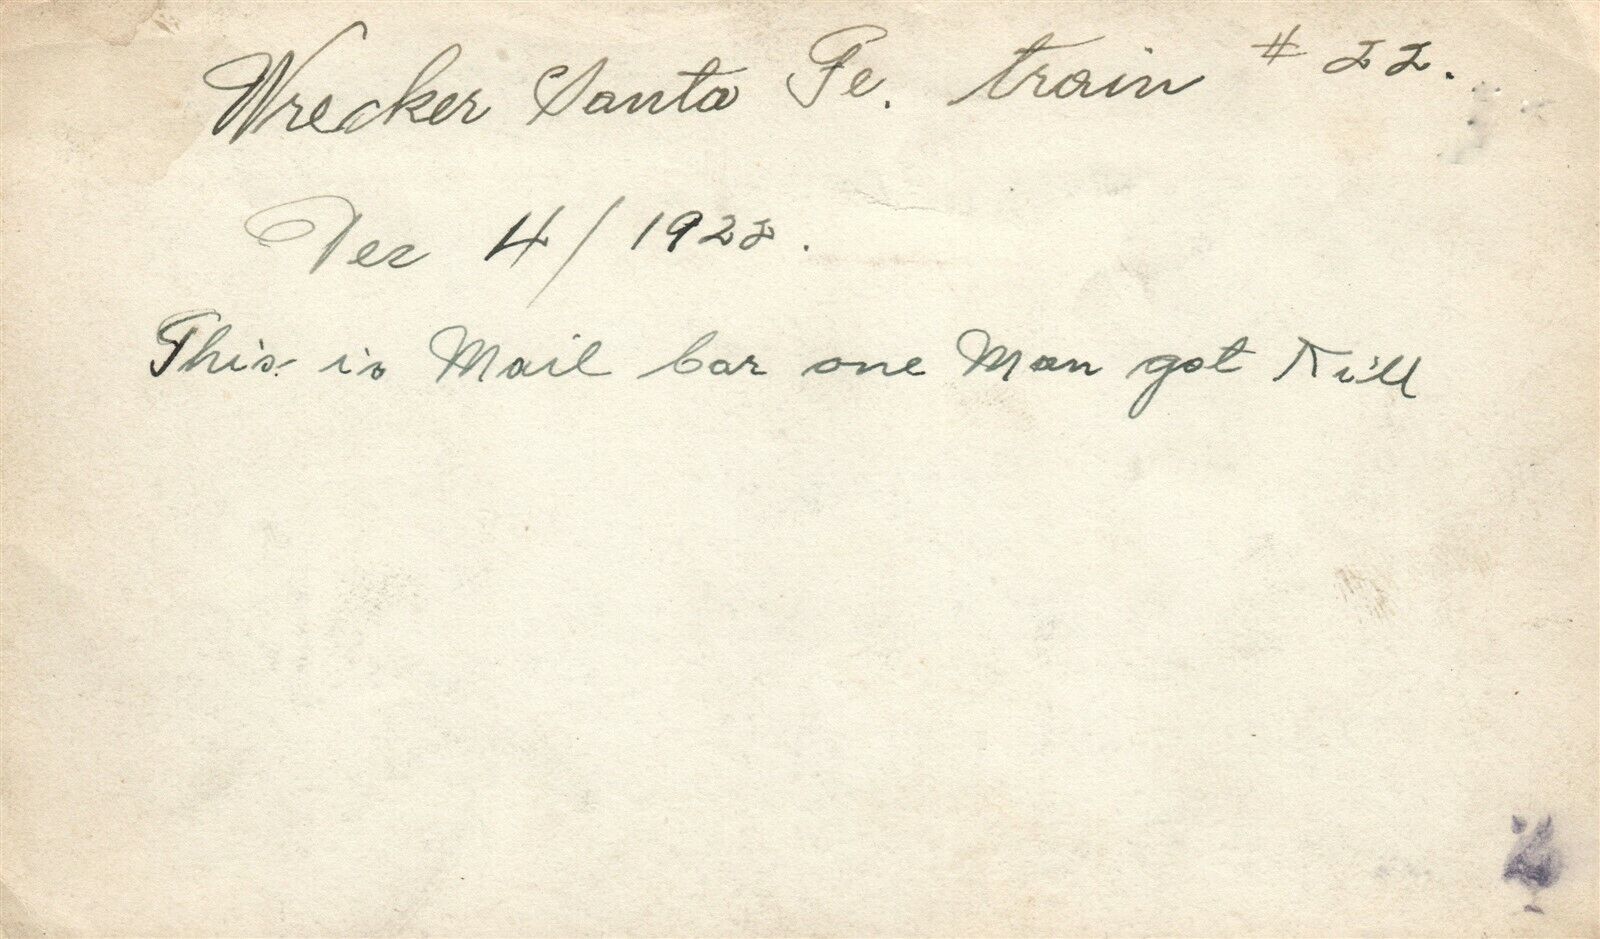 Wrecker Santa Fe. train # 22.
Dec 4/1922.
This is Mail bar one Man got Kill